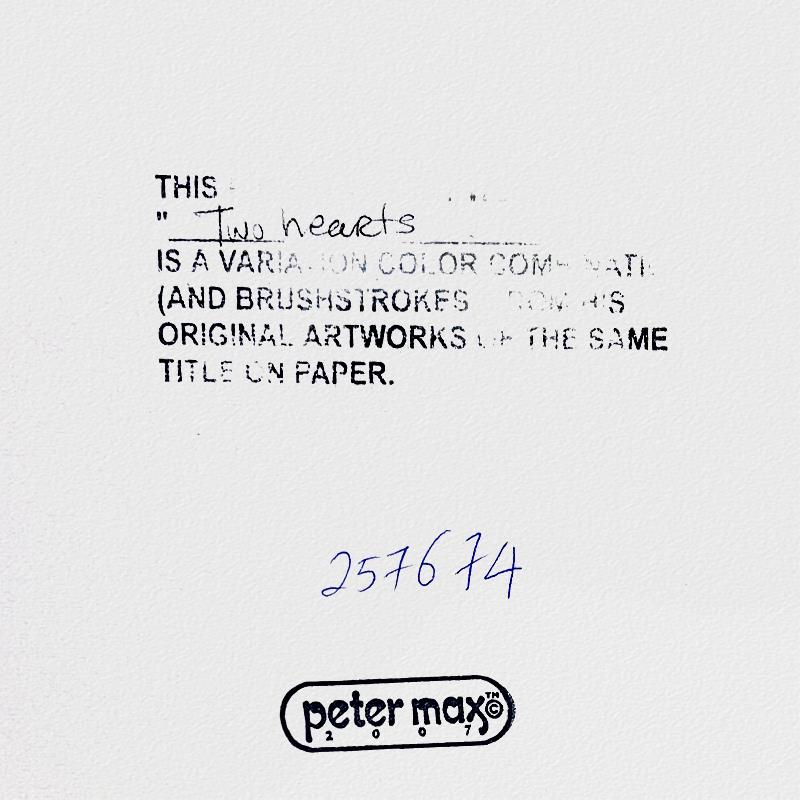 THIS
" Two hearts
IS A VARIATION COLOR COMBINATI
(AND BRUSHSTROKES FROM HIS
ORIGINAL ARTWORKS OF THE SAME
TITLE ON PAPER.
257674
peter max™©
2007